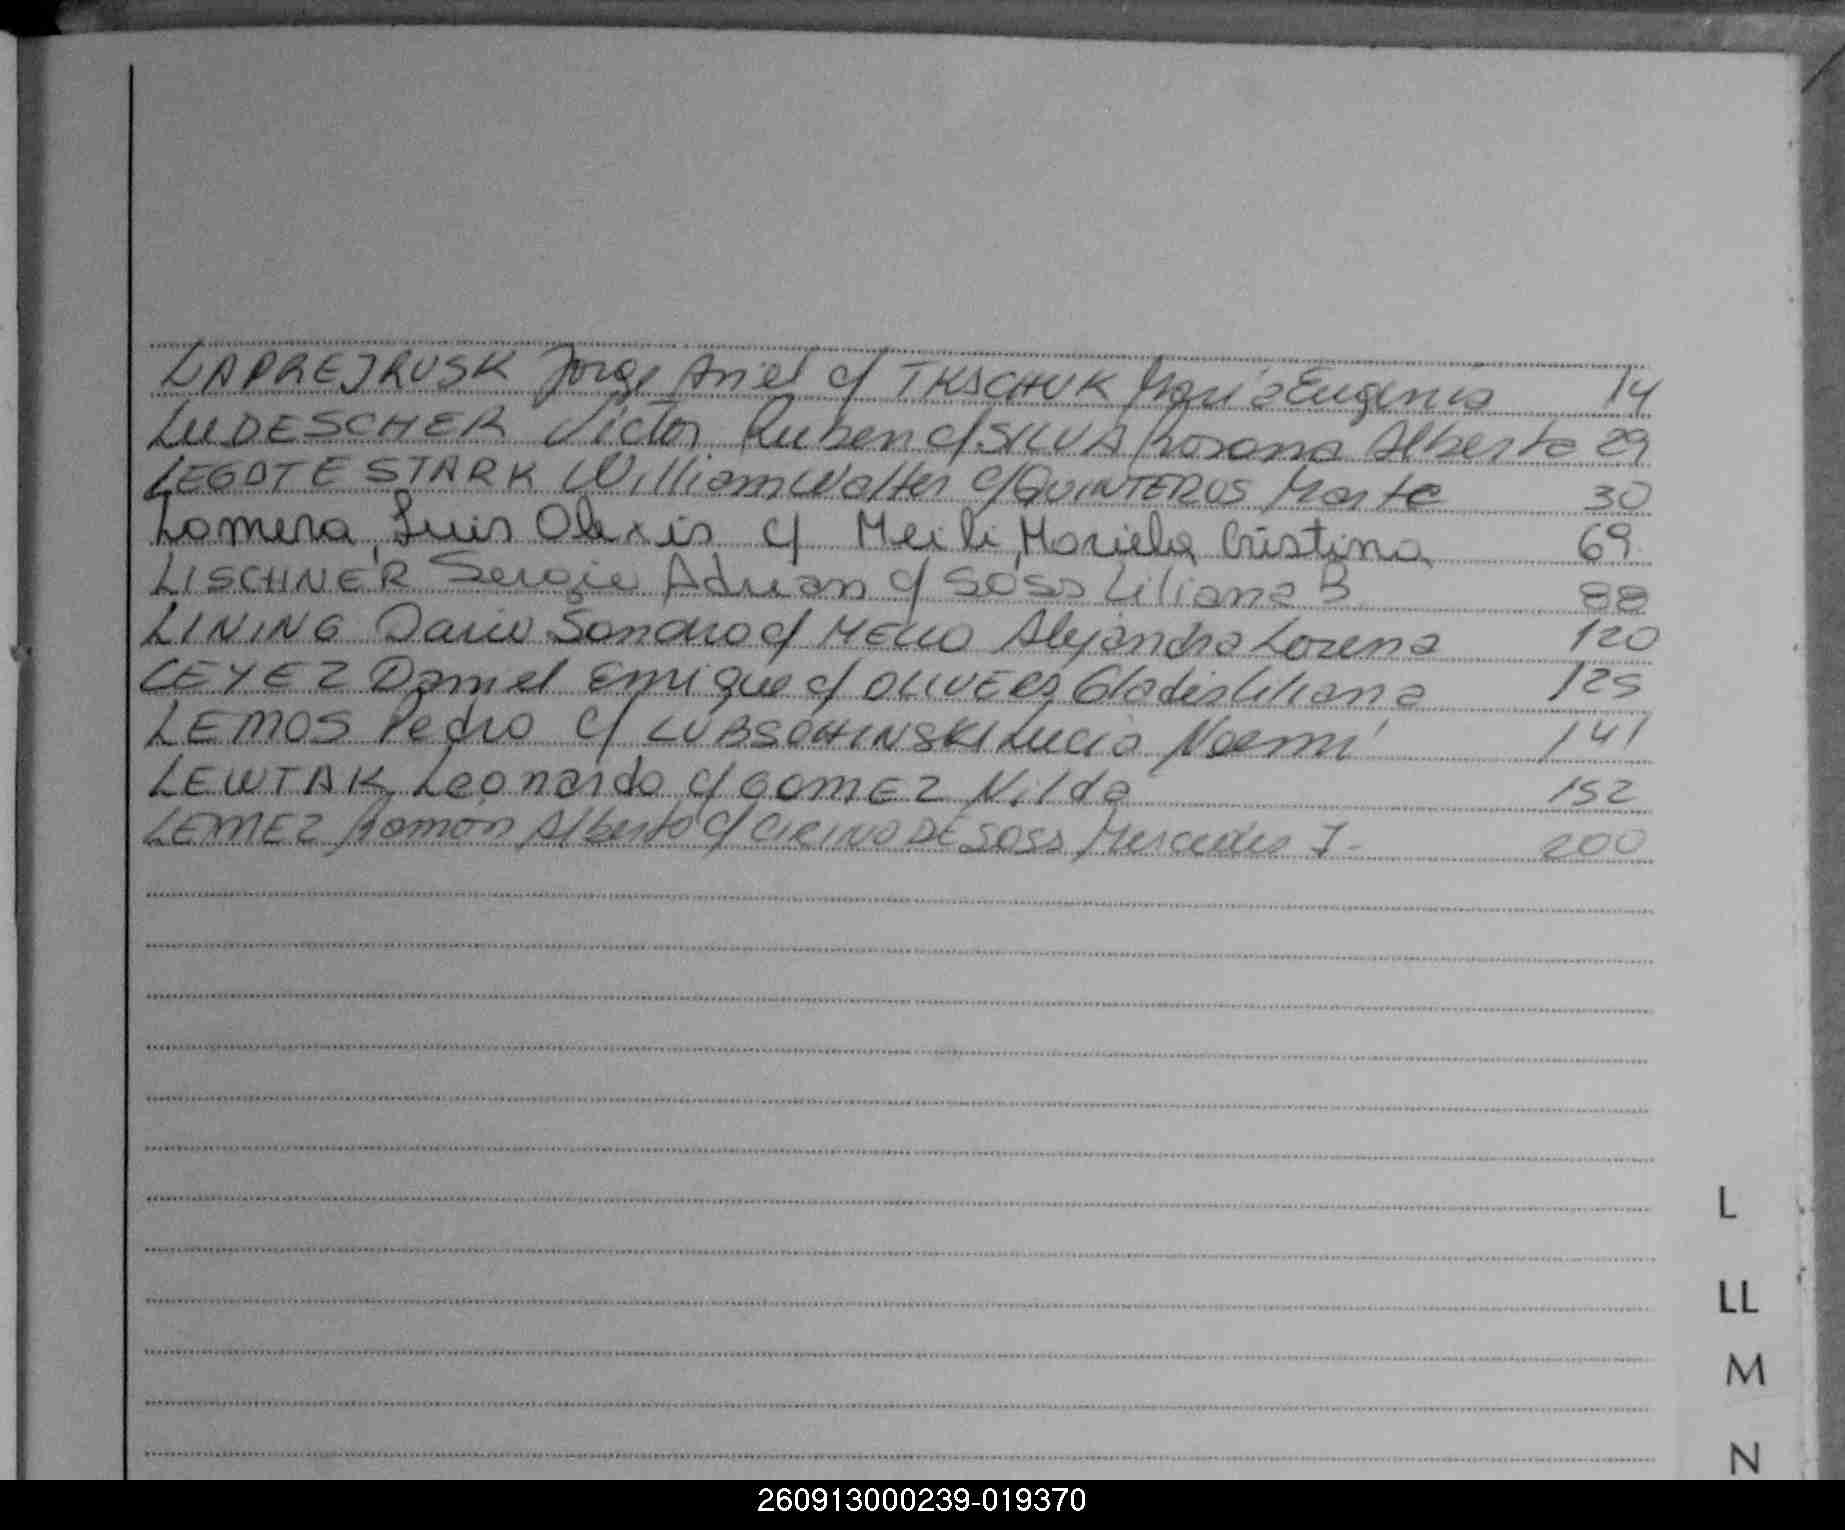 LAPREJRUSK Jorge Ariel c/ TKACHUK Maria Eugenia 14
LUDESCHER Victor Ruben c/ SILVA Rosana Alberta 29
LEGOTE STARK William Walter c/ QUINTEROS Marta 30
Lamera, Luis Alexis c/ Meili, Mariela Cristina 69
LISCHNER Sergio Adrian c/ SOSA Liliana B 88
LINING Dario Sandro c/ MELLO Alejandra Lorena 120
LEYEZ Daniel Enrique c/ OLIVERA Gladis Liliana 125
LEMOS Pedro c/ LUBSCHINSKI Lucia Noemí 141
LEWTAK Leonardo c/ GOMEZ Nilda 152
LEMEZ Ramon Alberto c/ CIRINO DE SOSA Mercedes J. 200
L
LL
M
N
260913000239-019370